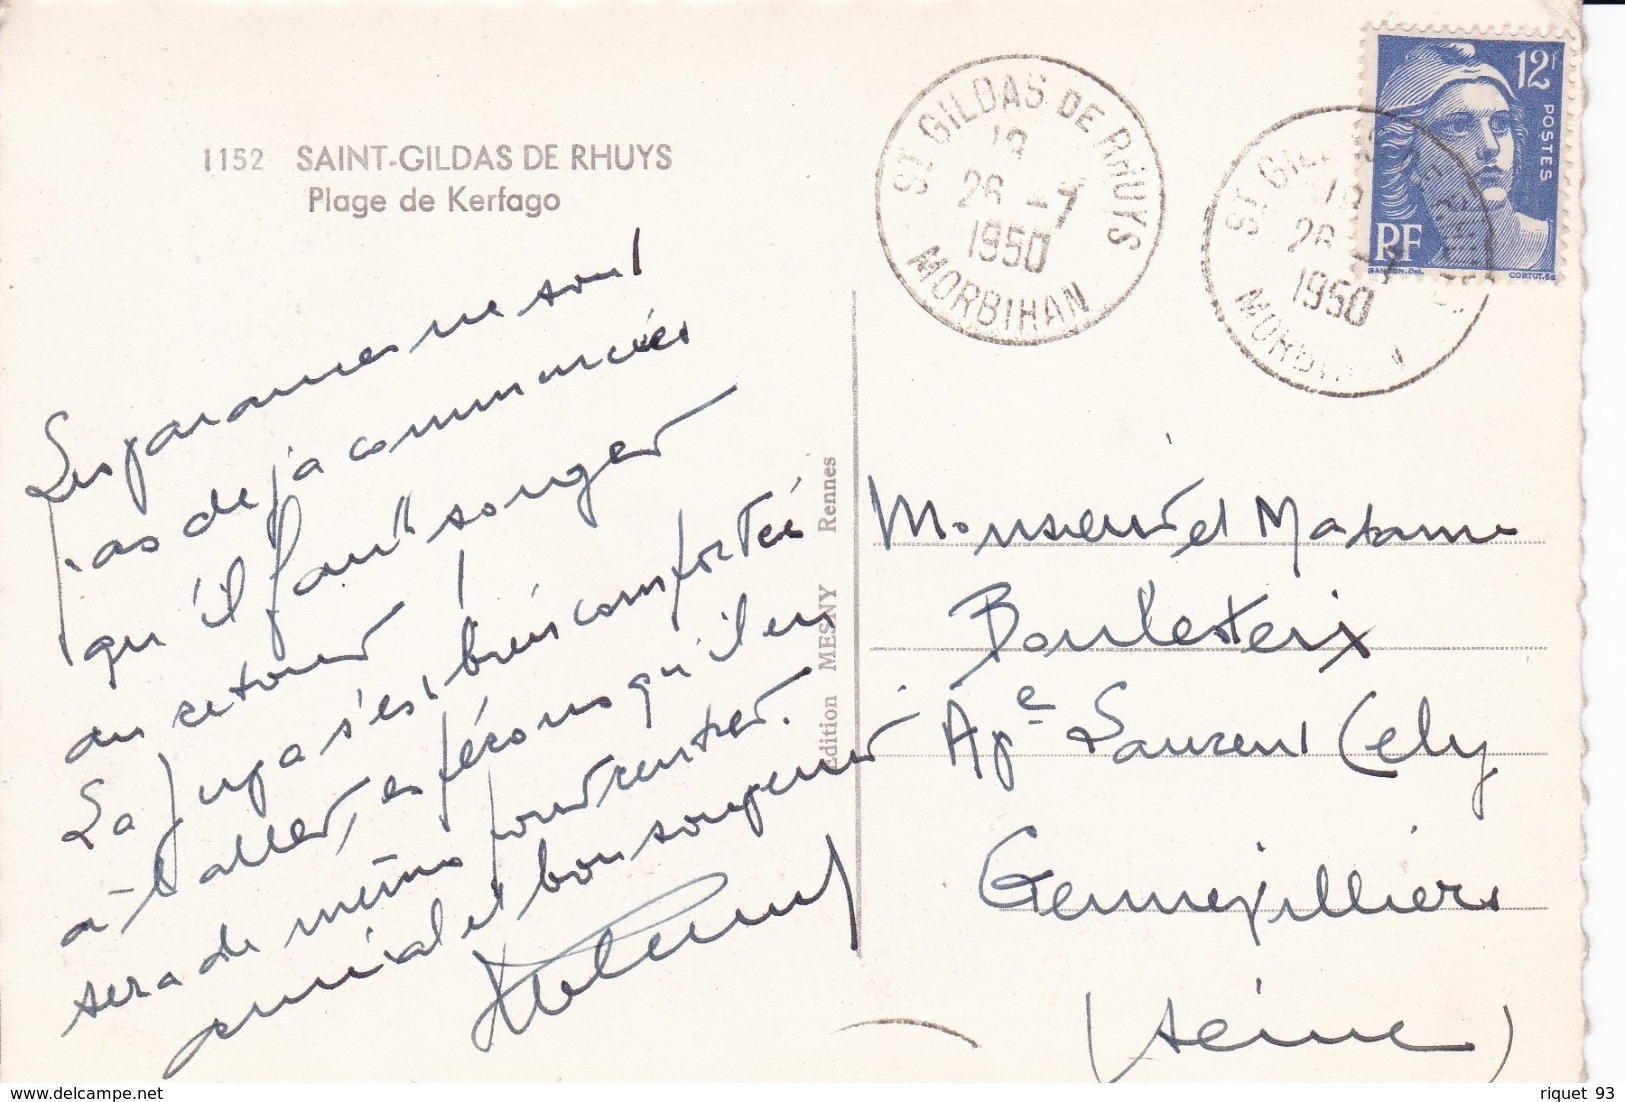 1152 SAINT-GILDAS DE RHUYS
Plage de Kerfago
ST GILDAS DE RHUYS
19
26 -7
1950
MORBIHAN
ST GILDAS DE RHUYS
19
26 -7
1950
MORBIHAN
12F
POSTES
RF
GANDON.Del.
CORTOT.Sc
Les vacances ne sont
pas déja commencées
qu'il faut songer
au retour !
La Juva s'est bien comportée
à l'aller, espérons qu'il en
sera de même pour rentrer.
amical et bon souvenir
Edition MESNY Rennes
Monsieur et Madame
Boulesteix
Ap e Laurent Cely
Gennevilliers
(Seine)
riquet 93